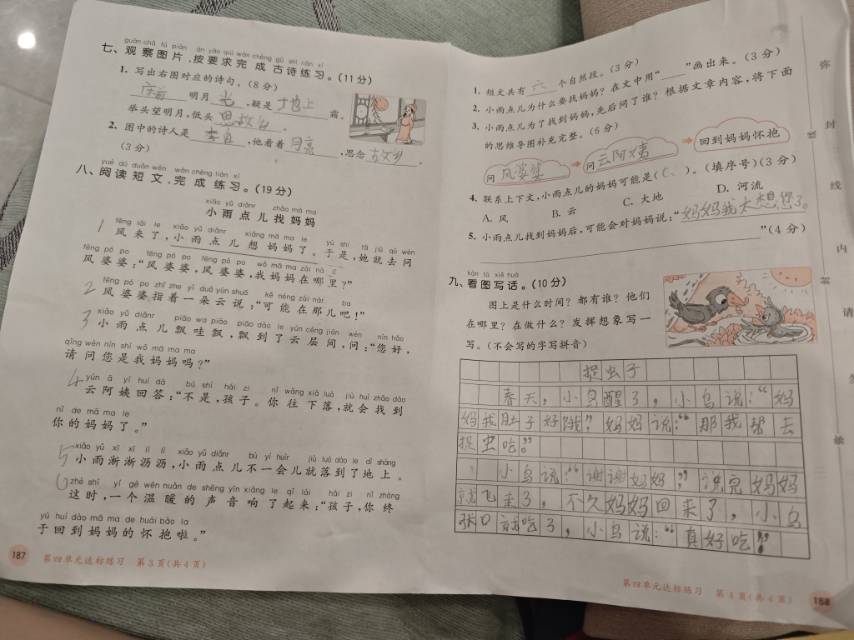 guān chá tú piàn àn yāo qiú wán chéng gǔ shī liàn xí
七、观察图片,按要求完成古诗练习。(11分)
1. 写出右图对应的诗句。(8分)
床前明月光,疑是地上霜。
举头望明月,低头思故乡。
2. 图中的诗人是李白,他看着月亮,思念故乡。
(3分)
yuè dú duǎn wén wán chéng liàn xí
八、阅读短文,完成练习。(19分)
xiǎo yǔ diǎnr zhǎo mā ma
小雨点儿找妈妈
1 风来了,小雨点儿想妈妈了。于是,她就去问
风婆婆:“风婆婆,风婆婆,我妈妈在哪里?”
2 风婆婆指着一朵云说:“可能在那儿吧!”
3 小雨点儿飘哇飘,飘到了云层间,问:“您好,
qǐng wèn nín shì wǒ mā ma ma
请问您是我妈妈吗?”
4 云阿姨回答:“不是,孩子。你往下落,就会找到
nǐ de mā ma le
你的妈妈了。”
5 小雨淅淅沥沥,小雨点儿不一会儿就落到了地上。
6 这时,一个温暖的声音响了起来:“孩子,你终
yú huí dào mā ma de huái bào la
于回到妈妈的怀抱啦。”
187
第四单元达标练习 第3页(共4页)
1. 短文共有六个自然段。(3分)
2. 小雨点儿为什么要找妈妈?在文中用“____”画出来。(3分)
3. 小雨点儿为了找到妈妈,先后问了谁?根据文章内容,将下面
的思维导图补充完整。(6分)
问风婆婆 → 问云阿姨 → 回到妈妈怀抱
4. 联系上下文,小雨点儿的妈妈可能是(C)。(填序号)(3分)
A. 风 B. 云 C. 大地 D. 河流
5. 小雨点儿找到妈妈后,可能会对妈妈说:“妈妈我太想您了。
”(4分)
kàn tú xiě huà
九、看图写话。(10分)
图上是什么时间?都有谁?他们
在哪里?在做什么?发挥想象写一
写。(不会写的字写拼音)
捉虫子
春天,小鸟醒了,小鸟说:“妈
妈我肚子好饿!”妈妈说:“那我帮去
捉虫吃。”
小鸟说:“谢谢妈妈”说完妈妈
就飞走了,不久妈妈回来了,小鸟
张口就吃了,小鸟说:“真好吃!”
第四单元达标练习 第4页(共4页)
188
弥
封
线
内
请